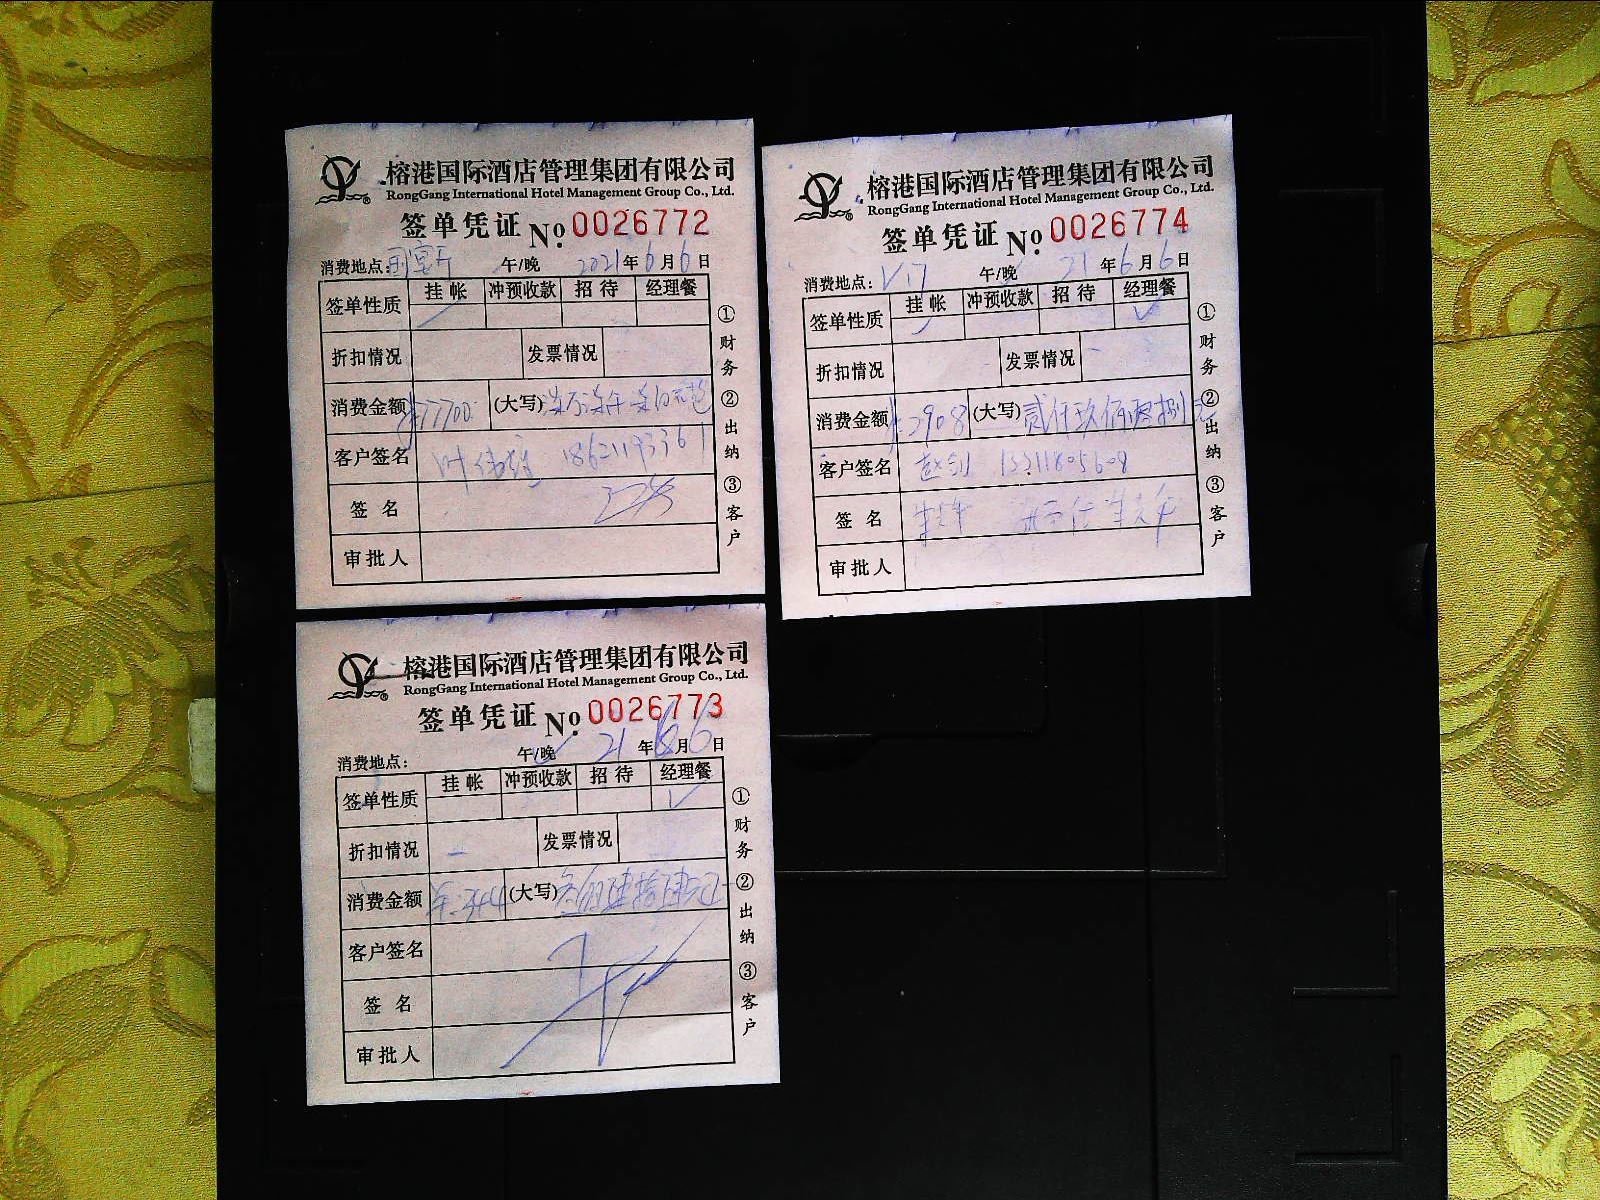 榕港国际酒店管理集团有限公司
RongGang International Hotel Management Group Co., Ltd.
签单凭证 No. 0026772
消费地点: 国宴厅 午/晚 2021年6月6日
签单性质 挂帐 冲预收款 招待 经理餐
折扣情况 发票情况
消费金额 ¥77700 (大写)
客户签名 叶伟雄 18621193361
签名
审批人
①财务 ②出纳 ③客户
榕港国际酒店管理集团有限公司
RongGang International Hotel Management Group Co., Ltd.
签单凭证 No. 0026774
消费地点: V17 午/晚 21年6月6日
签单性质 挂帐 冲预收款 招待 经理餐
折扣情况 发票情况
消费金额 ¥2908 (大写) 贰仟玖佰零捌元
客户签名 赵创
签名
审批人
①财务 ②出纳 ③客户
榕港国际酒店管理集团有限公司
RongGang International Hotel Management Group Co., Ltd.
签单凭证 No. 0026773
消费地点: 午/晚 21年6月6日
签单性质 挂帐 冲预收款 招待 经理餐
折扣情况 发票情况
消费金额 (大写)
客户签名
签名
审批人
①财务 ②出纳 ③客户